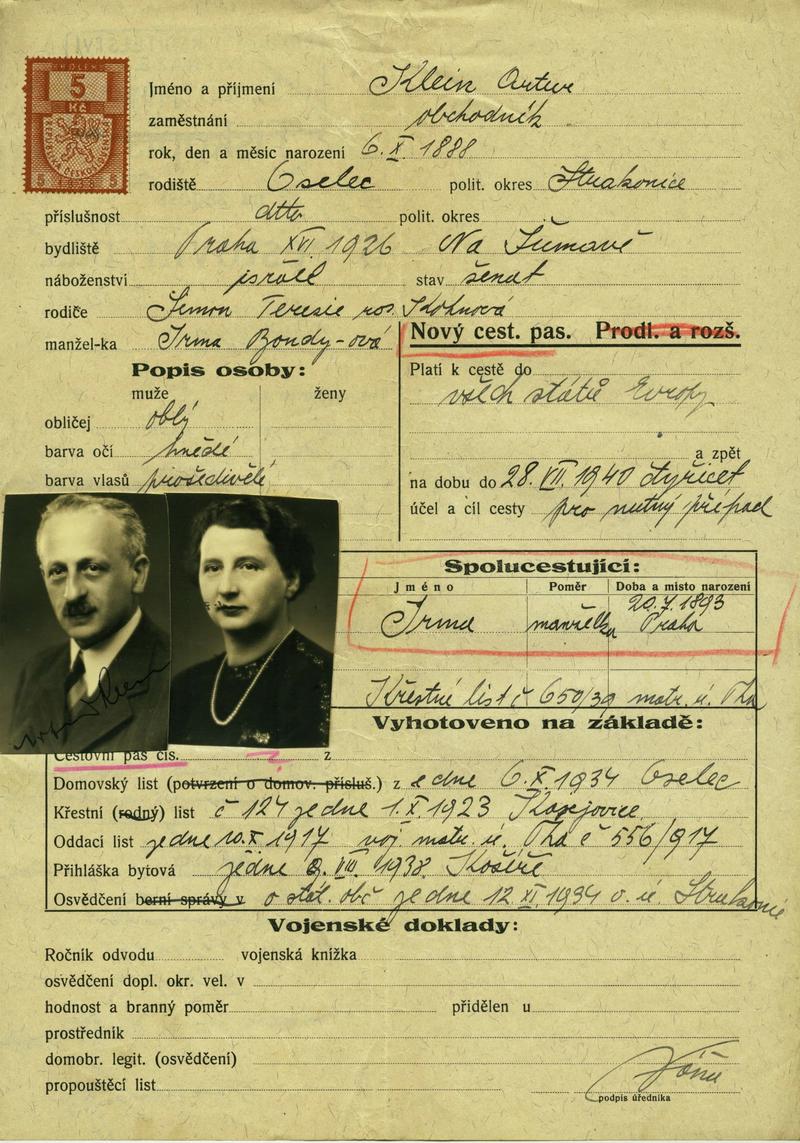 5
Kč
REPUBLIKA ČESKOSLOVENSKÁ
Jméno a příjmení Klein Artur
zaměstnání obchodník
rok, den a měsíc narození 6. X. 1888
rodiště Oselec polit. okres Strakonice
příslušnost dtto polit. okres
bydliště Praha XVI. 1926 Na Šumavě
náboženství israel stav ženat
rodiče Šimon Teresie roz. Kohnová
manžel-ka Irma Bondy-ová
Nový cest. pas. Prodl. a rozš.
Popis osoby:
muže ženy
obličej oblý
barva očí hnědé
barva vlasů prošedivělé
Platí k cestě do
všech států Evropy
a zpět
na dobu do 28. VII. 1940 čtyřicet
účel a cíl cesty pro nutný případ
Spolucestující:
Jméno Poměr Doba a místo narození
Irma manželka 20.7.1893 Praha
Křestní list č 650/39 matr. ú. Pha
Vyhotoveno na základě:
Cestovní pas čís. z
Domovský list (potvrzení o domov. přísluš.) z e dne 6. X. 1934 Oselec
Křestní (rodný) list č 124 ze dne 1. X. 1923 Kasejovice
Oddací list ze dne 10. X. 1917 voj. matr. ú. Pha č 556/917
Přihláška bytová ze dne 9. VIII. 1938 Košíře
Osvědčení berní správy v o stát. obč ze dne 12. XI. 1934 o. ú. Strakonice
Vojenské doklady:
Ročník odvodu vojenská knížka
osvědčení dopl. okr. vel. v
hodnost a branný poměr přidělen u
prostředník
domobr. legit. (osvědčení)
propouštěcí list
podpis úředníka